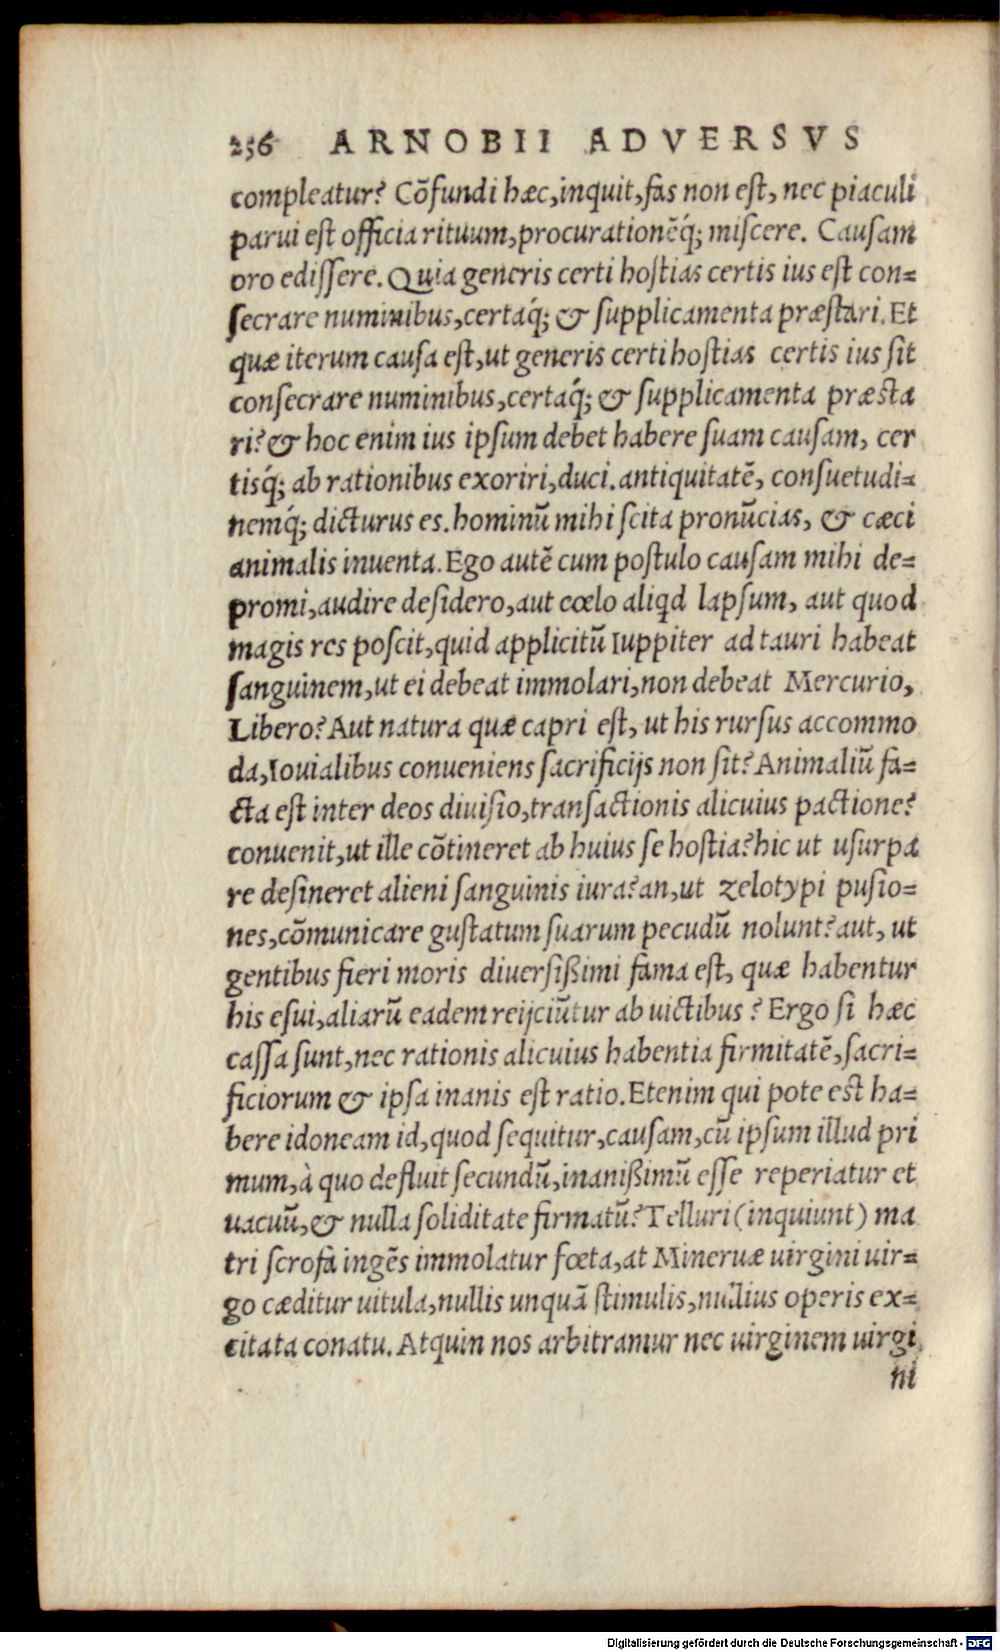 256 ARNOBII ADVERSVS
compleatur? Cōfundi hæc, inquit, fas non est, nec piaculi
parui est officia rituum, procurationēq́; miscere. Causam
oro edissere. Quia generis certi hostias certis ius est con-
secrare numinibus, certaq́; & supplicamenta præstari. Et
quæ iterum causa est, ut generis certi hostias certis ius sit
consecrare numinibus, certaq́; & supplicamenta præsta
ri? & hoc enim ius ipsum debet habere suam causam, cer
tisq́; ab rationibus exoriri, duci. antiquitatē, consuetudi-
nemq́; dicturus es. hominū mihi scita pronūcias, & cæci
animalis inuenta. Ego autē cum postulo causam mihi de-
promi, audire desidero, aut cœlo aliqd lapsum, aut quod
magis res poscit, quid applicitū Iuppiter ad tauri habeat
sanguinem, ut ei debeat immolari, non debeat Mercurio,
Libero? Aut natura quæ capri est, ut his rursus accommo
da, Iouialibus conueniens sacrificijs non sit? Animaliū fa-
cta est inter deos diuisio, transactionis alicuius pactione?
conuenit, ut ille cōtineret ab huius se hostia? hic ut usurpa
re desineret alieni sanguinis iura? an, ut zelotypi pusio-
nes, cōmunicare gustatum suarum pecudū nolunt? aut, ut
gentibus fieri moris diuersißimi fama est, quæ habentur
his esui, aliarū eadem reijciūtur ab uictibus? Ergo si hæc
cassa sunt, nec rationis alicuius habentia firmitatē, sacri-
ficiorum & ipsa inanis est ratio. Etenim qui pote est ha-
bere idoneam id, quod sequitur, causam, cū ipsum illud pri
mum, à quo defluit secundū, inanißimū esse reperiatur et
uacuū, & nulla soliditate firmatū? Telluri (inquiunt) ma
tri scrofa ingēs immolatur fœta, at Mineruæ uirgini uir-
go cæditur uitula, nullis unquā stimulis, nullius operis ex-
citata conatu. Atquin nos arbitramur nec uirginem uirgi
ni
Digitalisierung gefördert durch die Deutsche Forschungsgemeinschaft - DFG